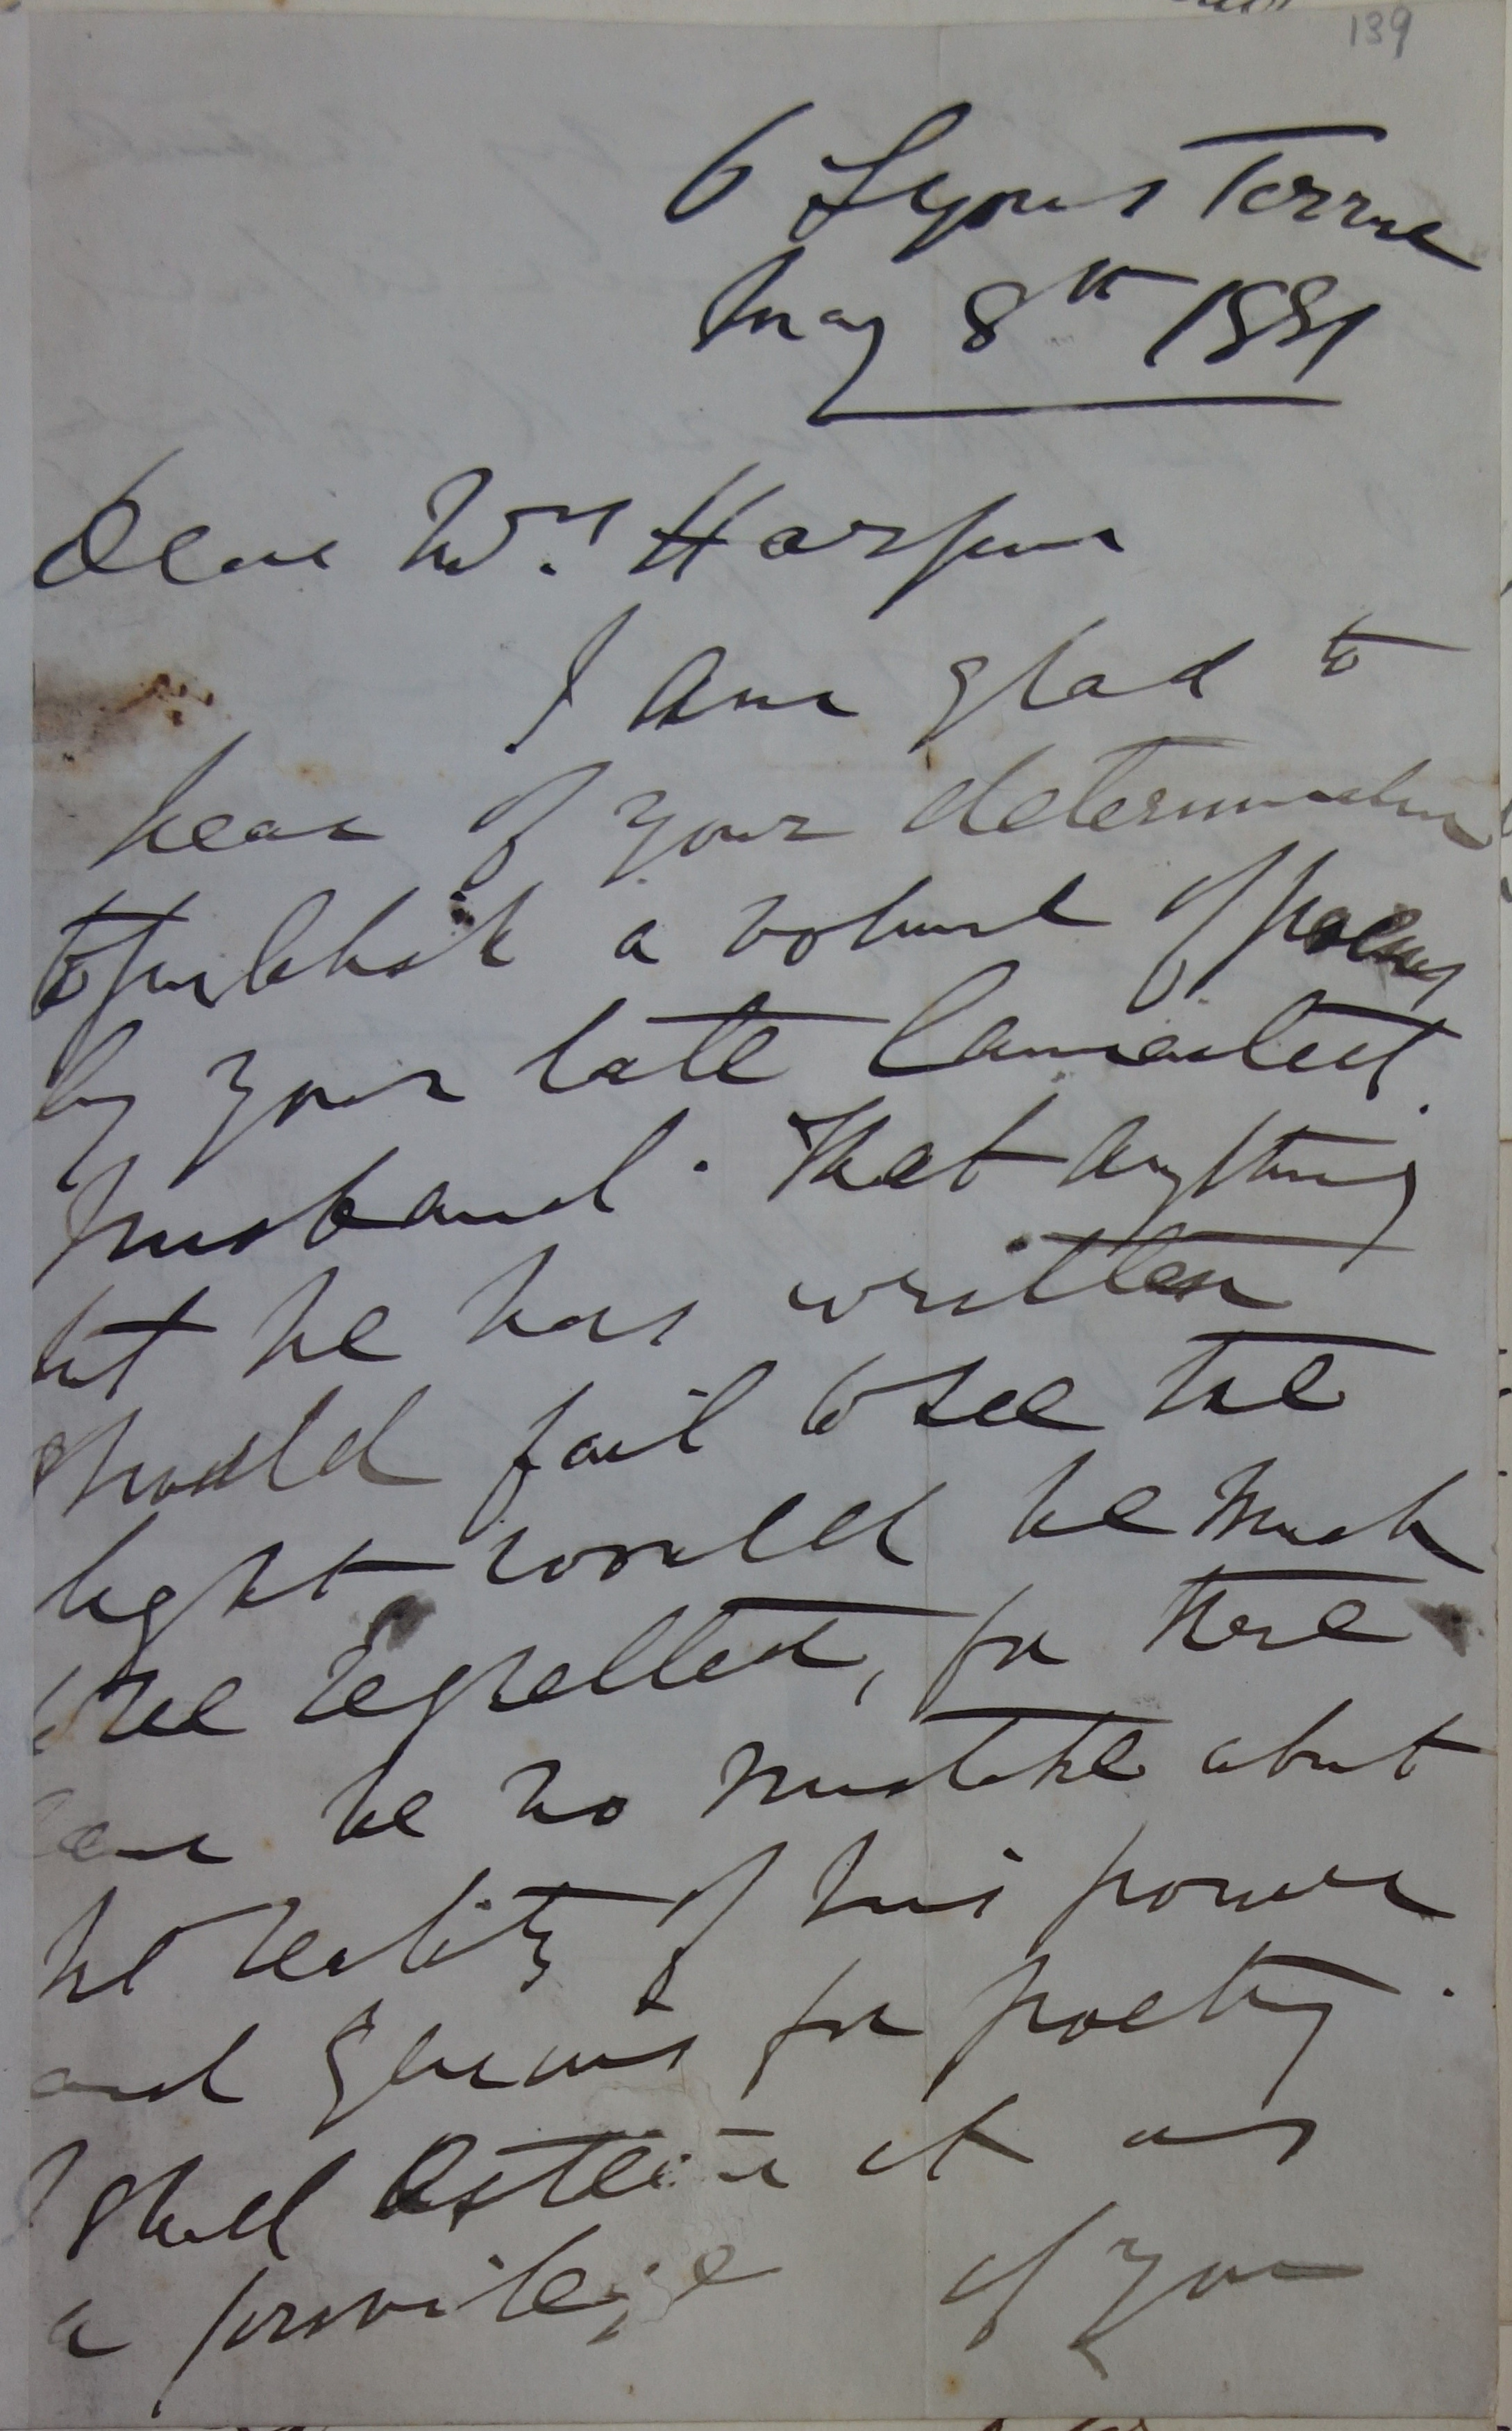 139
6 Lyons Terrace
May 8th 1881
Dear Mrs. Harpur
I am glad to
hear of your determination
to publish a volume of poems
by your late lamented
husband. That anything
that he has written
should fail to see the
light would be much
to be regretted, for there
can be no mistake about
the reality of his power
and genius for poetry.
I shall esteem it as
a privilege if you